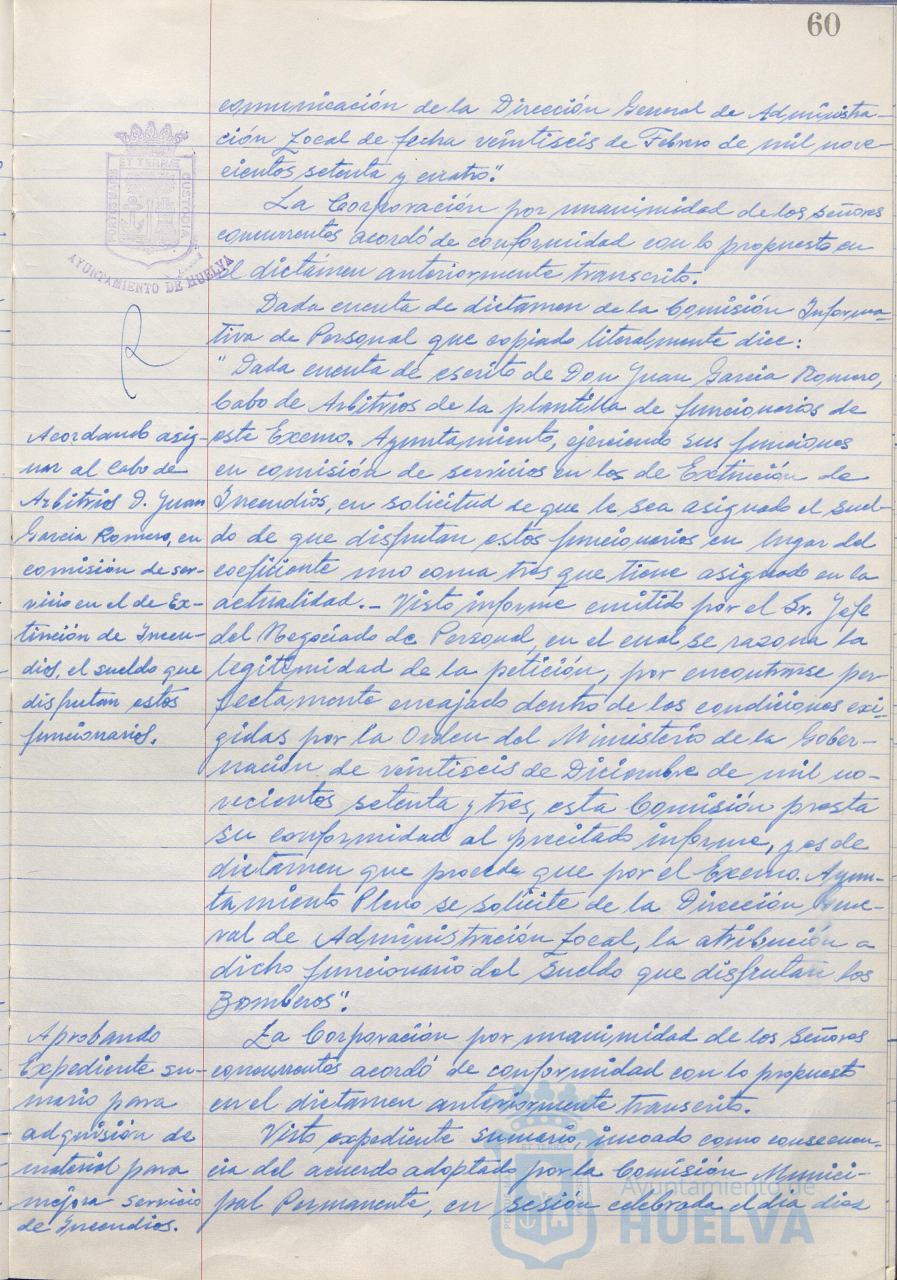 60
comunicación de la Dirección General de Administra-
ción Local de fecha veintiseis de Febrero de mil nove-
cientos setenta y cuatro".
La Corporación por unanimidad de los señores
concurrentes acordó de conformidad con lo propuesto en
el dictámen anteriormente transcrito.
PORTUS MARIS ET TERRAE CUSTODIA
AYUNTAMIENTO DE HUELVA
Dada cuenta de dictamen de la Comisión Informa-
tiva de Personal que copiado literalmente dice:
"Dada cuenta de escrito de Don Juan García Romero,
Cabo de Arbitrios de la plantilla de funcionarios de
este Excmo. Ayuntamiento, ejerciendo sus funciones
en comisión de servicios en los de Extinción de
Incendios, en solicitud de que le sea asignado el suel-
do de que disfrutan estos funcionarios en lugar del
coeficiente uno coma tres que tiene asignado en la
actualidad.- Visto informe emitido por el Sr. Jefe
del Negociado de Personal, en el cual se razona la
legitimidad de la petición, por encontrarse per-
fectamente encajado dentro de las condiciones exi-
gidas por la Orden del Ministerio de la Gober-
nación de veintiseis de Diciembre de mil no-
vecientos setenta y tres, esta Comisión presta
su conformidad al precitado informe, y es de
dictamen que procede que por el Excmo. Ayun-
tamiento Pleno se solicite de la Dirección Gene-
ral de Administración Local, la atribución a
dicho funcionario del sueldo que disfrutan los
Bomberos".
Acordando asig-
nar al Cabo de
Arbitrios D. Juan
García Romero, en
comisión de ser-
vicio en el de Ex-
tinción de Incen-
dios, el sueldo que
disfrutan estos
funcionarios.
La Corporación por unanimidad de los señores
concurrentes acordó de conformidad con lo propuesto
en el dictámen anteriormente transcrito.
Visto expediente sumario, incoado como consecuen-
cia del acuerdo adoptado por la Comisión Munici-
pal Permanente, en sesión celebrada el día diez
Aprobando
Expediente su-
mario para
adquisión de
material para
mejora servicio
de Incendios.
Ayuntamiento de
HUELVA